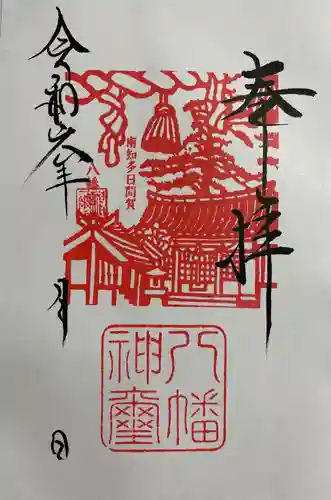 奉拝
八幡
神璽
南知多日間賀
八幡
令和六年
月
日